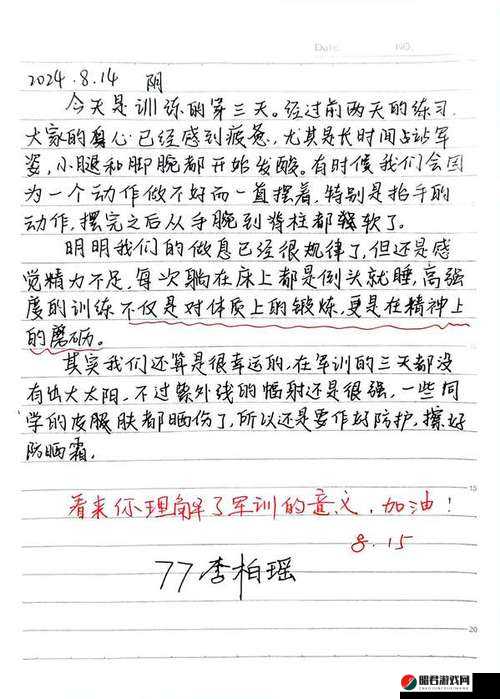 Date. NO.
2024.8.14 阴
今天是训练的第三天。经过前两天的练习,
大家的身心已经感到疲惫,尤其是长时间占站军
姿,小腿和脚腕都开始发酸。有时候我们会因
为一个动作做不好而一直摆着,特别是抬手的
动作,摆完之后从手腕到脊柱都软了。
明明我们的做息已经很规律了,但还是感
觉精力不足,每次躺在床上都是倒头就睡,高强
度的训练不仅是对体质上的锻炼,更是在精神上
的磨砺。
其实我们还算是很幸运的,在军训的三天都没
有出大太阳,不过紫外线的辐射还是很强,一些同
学的皮肤都晒伤了,所以还是要作好防护,擦好
防晒霜。
15
看来你理解了军训的意义,加油!
8.15
77李柏瑶
20
昭君游戏网